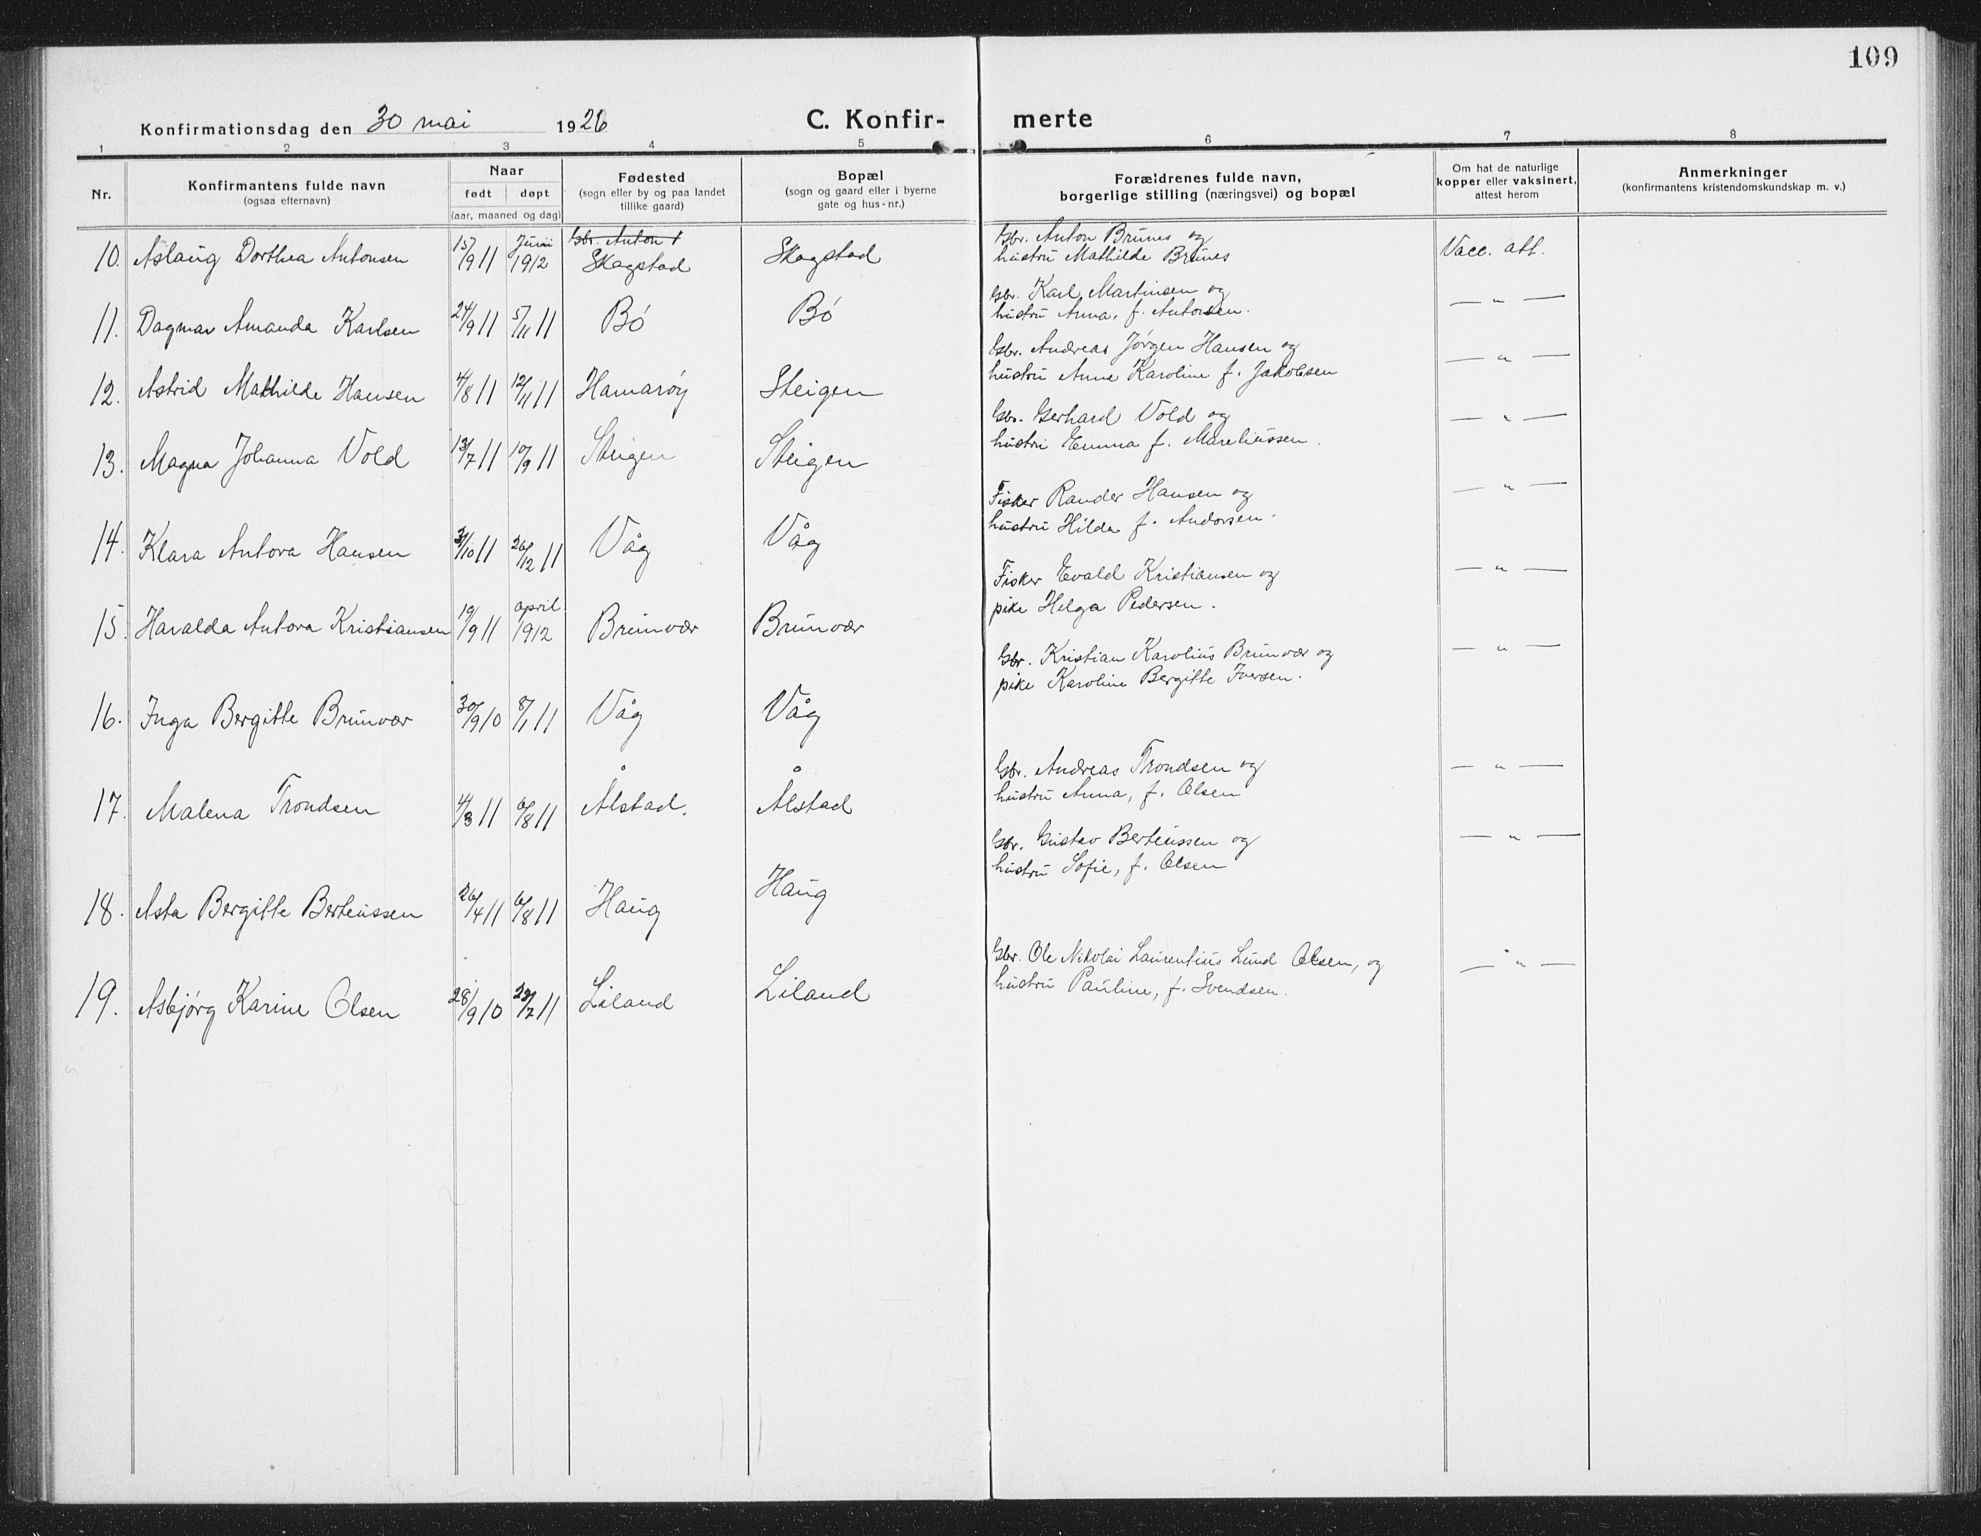 109
Konfirmationsdag den 30 mai 1926 C. Konfir- merte
1 2 3 4 5 6 7 8
Nr.
Konfirmantens fulde navn
(ogsaa efternavn)
Naar
født døpt
(aar, maaned og dag)
Fødested
(sogn eller by og paa landet
tillike gaard)
Bopæl
(sogn og gaard eller i byerne
gate og hus-nr.)
Forældrenes fulde navn,
borgerlige stilling (næringsvei) og bopæl
Om hat de naturlige
kopper eller vaksinert,
attest herom
Anmerkninger
(konfirmantens kristendomskundskap m. v.)
Gbr. Anton
10. Aslaug Dorthea Antonsen 15/9 11 Juni 1912 Skagstad Skagstad
Gbr. Anton Brunes og
hustru Mathilde Brunes
Vacc. att.
11. Dagmar Amanda Karlsen 24/9 11 5/11 11 Bö Bö
Gbr. Karl Martinsen og
hustru Anna, f. Antonsen.
— " —
12. Astrid Mathilde Hansen 4/8 11 12/11 11 Hamaröy Steigen
Gbr. Andreas Jørgen Hansen og
hustru Anne Karoline f. Jakobsen
— " —
13. Magna Johanna Vold 13/7 11 10/9 11 Steigen Steigen
Gbr. Gerhard Vold og
hustru Emma f. Mareliussen.
— " —
14. Klara Antora Hansen 31/10 11 26/12 11 Våg Våg
Fisker Rander Hansen og
hustru Hilda f. Andorsen.
— " —
15. Haralda Antora Kristiansen 19/9 11 april 1912 Brunvær Brunvær
Fisker Evald Kristiansen og
pike Helga Pedersen.
— " —
16. Inga Bergitte Brunvær 30/9 10 8/1 11 Våg Våg
Gbr. Kristian Karolius Brunvær og
pike Karoline Bergitte Iversen.
— " —
17. Malena Trondsen 4/3 11 6/8 11 Ålstad. Ålstad
Gbr. Andreas Trondsen og
hustru Anna, f. Olsen
— " —
18. Asta Bergitte Berteussen 26/4 11 6/8 11 Haug Haug
Gbr. Gustav Berteussen og
hustru Sofie, f. Olsen
— " —
19. Asbjørg Karine Olsen 28/9 10 23/7 11 Liland Liland
Gbr. Ole Nikolai Laurentius Lund Olsen, og
hustru Pauline, f. Svendsen.
— " —